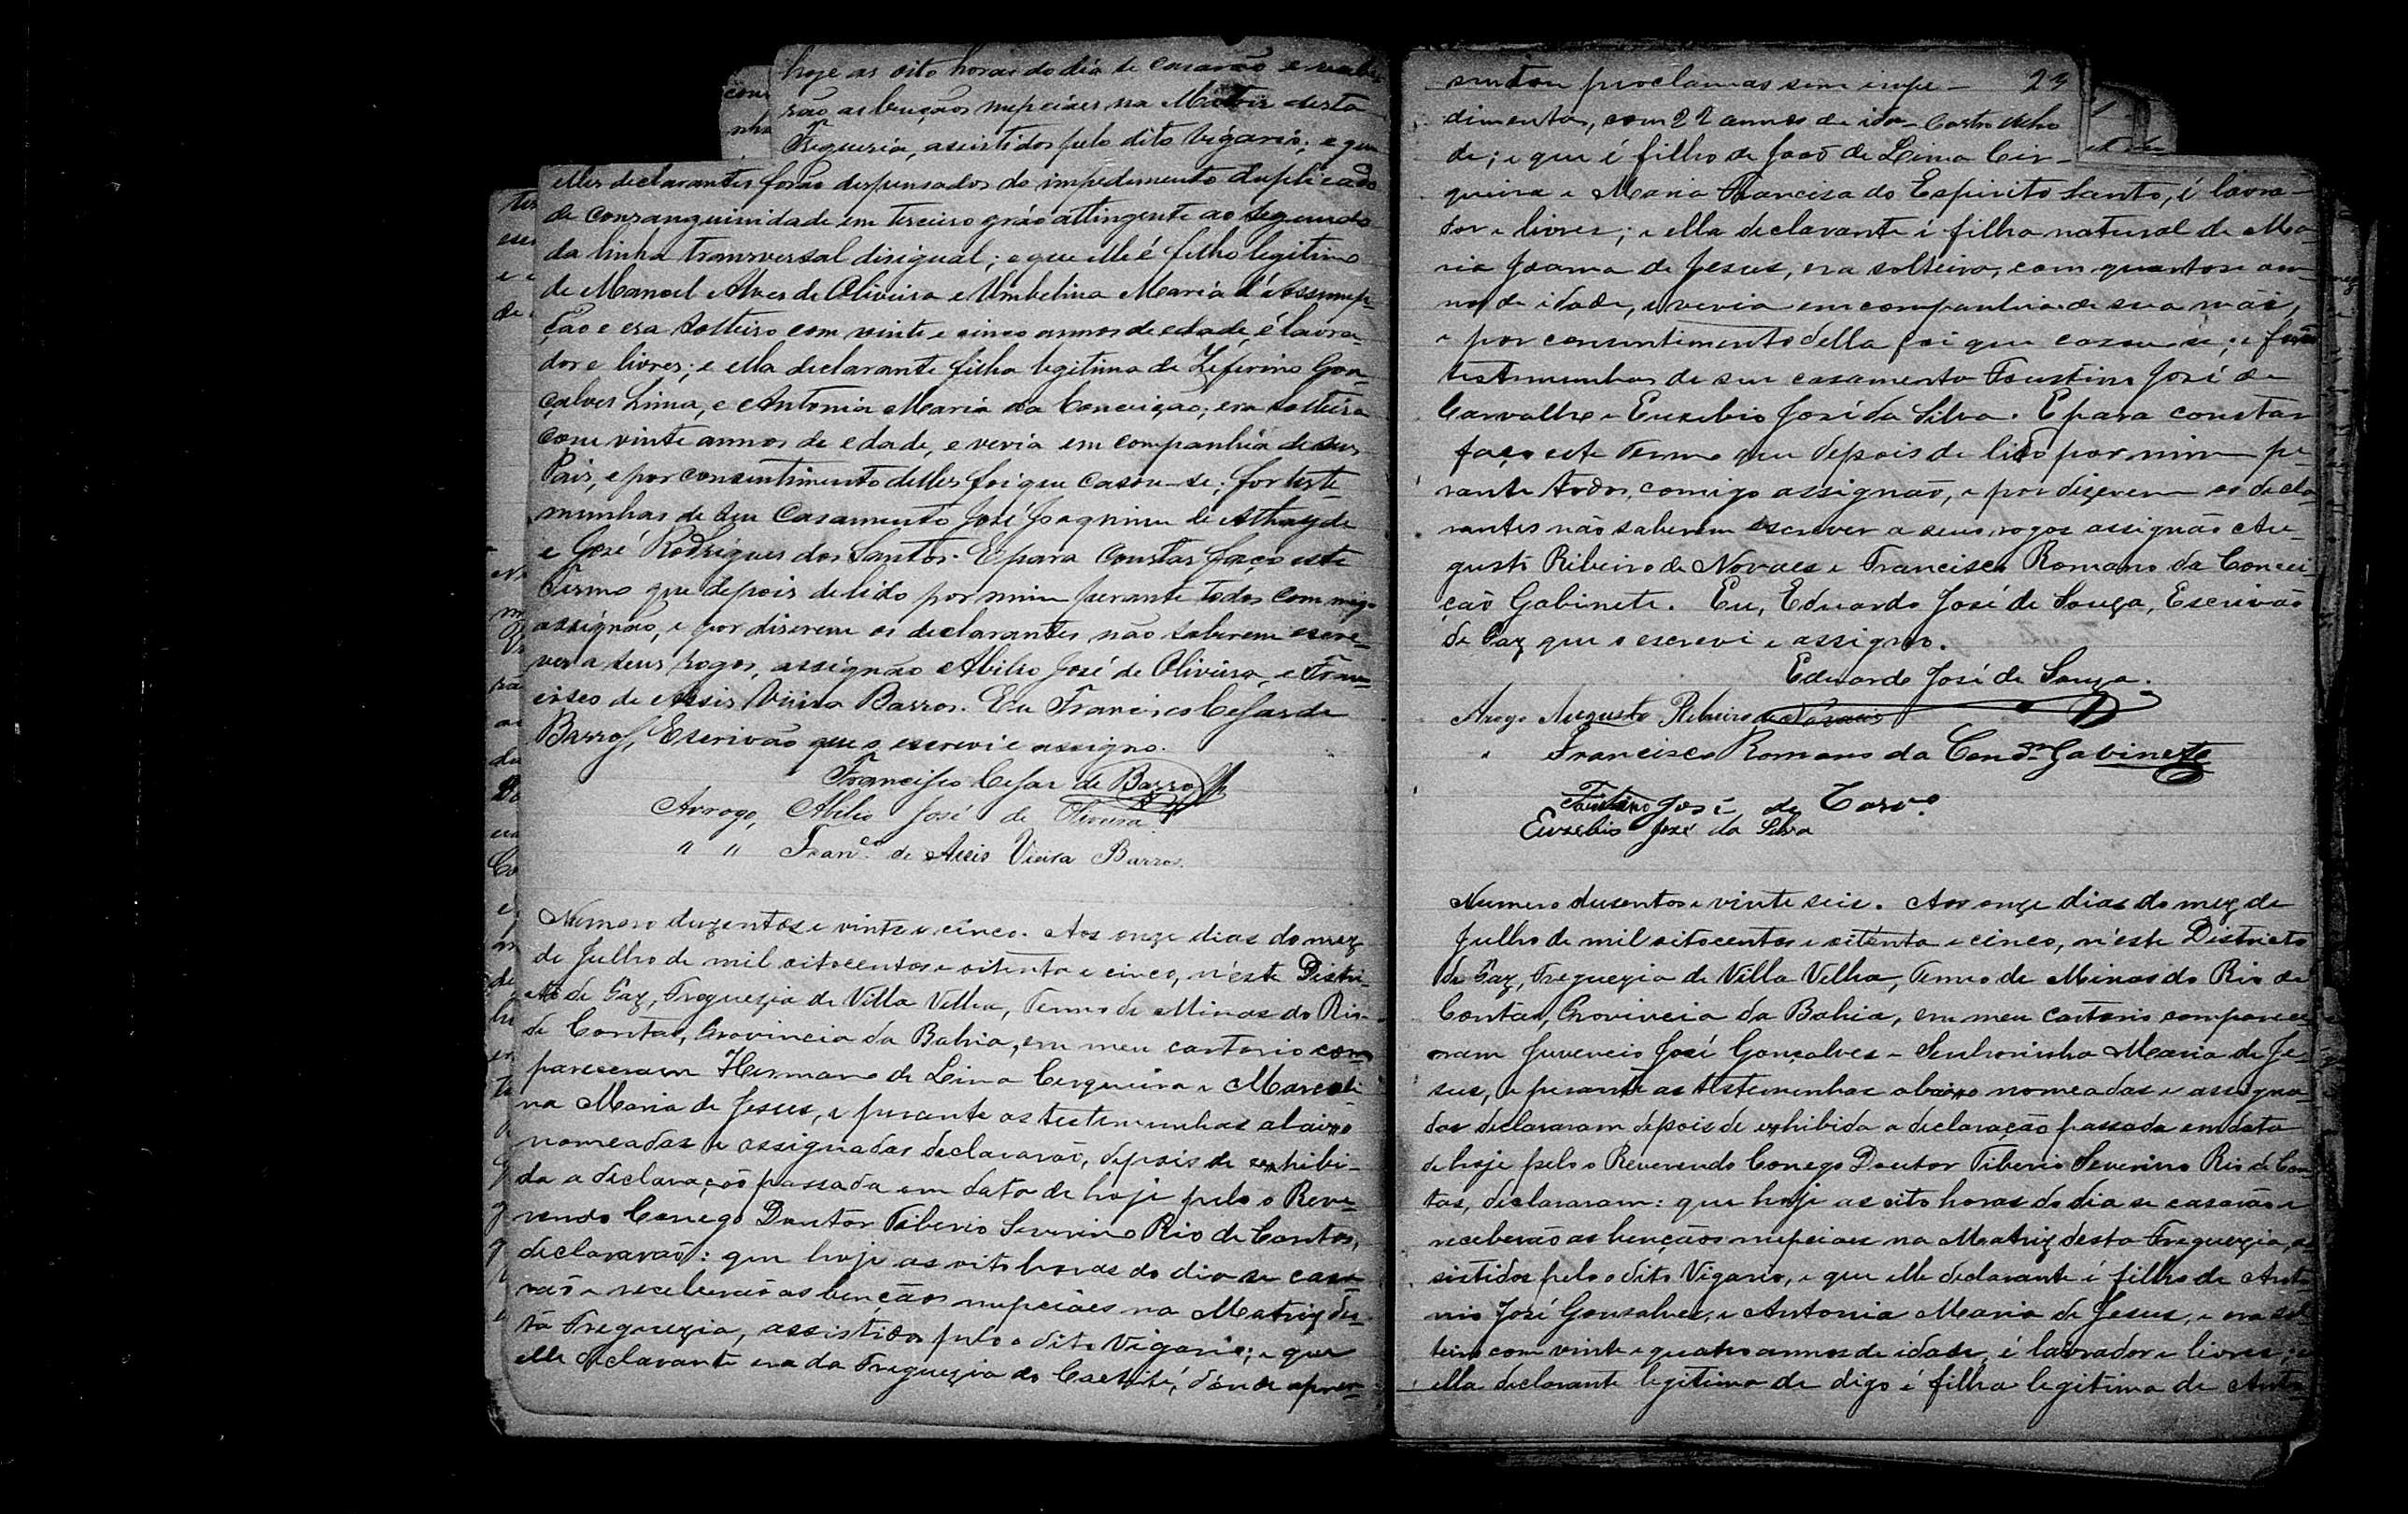 hoje as oito horas do dia se casarão e recebe-
rão as bençãos nupciaes na Matriz desta
Freguesia, assistidos pelo dito Vigario; e que
elles declarantes forão despensados do impedimento duplicado
de consanguinidade em terceiro gráo attingente ao segundo
da linha transversal disigual; e que elle é filho legitimo
de Manoel Alves de Oliveira e Umbelina Maria d'Assump-
ção e era solteiro com vinte e cinco annos de edade, é lavra-
dor e livres; e ella declarante filha legitima de Zeferino Gon-
çalves Lima, e Antonia Maria da Conceição, era solteira
com vinte annos de edade, e vevia em companhia de seus
Pais, e por consentimento delles foi que casou-se; for teste-
munhas de seu Casamento José Joaquim de Athayde
e José Rodrigues dos Santos. E para constar faço este
Termo que depois de lido por mim perante todos commigo
assignão, e por diserem os declarantes não saberem escre-
ver a seus rogos, assignão Abilio José de Oliveira, e Fran-
cisco de Assis Vieira Barros. Eu Francisco Cesar de
Barros, Escrivão que o escrevi e assigno.
Francisco Cesar de Barros
Arrogo, Abilio José de Oliveira
" " Fran.co de Assis Vieira Barros.
Numero duzentos e vinte e cinco. Aos onze dias do mez
de Julho de mil oitocentos e oitenta e cinco, n'este Distri-
cto de Paz, Freguezia de Villa Velha, Termo de Minas do Rio
de Contas, Provincia da Bahia, em meu cartorio com
pareceram Hermano de Lima Cerqueira e Marcoli-
na Maria de Jesus, e perante as testemunhas abaixo
nomeadas e assignadas declararão, depois de exhibi-
da a declaração passada em data de hoje pelo o Reve-
rendo Conego Doutor Tiberio Severino Rio de Contas,
declararão: que hoje as oito horas do dia se casa-
rão e receberão as bençãos nupciaes na Matriz des-
ta Freguezia, assistidos pelo o dito Vigario; e que
elle declarante era da Freguezia do Caetité, donde apren-
sentou proclamas sem impe- 23
dimentos, com 22 annos de ida- Castro Velho
de; e que é filho de João de Lima Cer-
queira e Maria Francisca do Espirito Santo, é lavra-
dor e livres; e ella declarante é filha natural de Ma-
ria Joanna de Jesus, era solteira, com quantose an-
nos de idade, e vevia em companhia de sua mãi,
e por consentimento della foi que casou-se; e forão
testemunhas de seu casamento Faustino José de
Carvalho e Euzebio José da Silva. E para constar
faço este Termo que depois de lido por mim pe-
rante todos, comigo assignão, e por dizerem os decla-
rantes não saberem escrever a seus rogos assignão Au-
gusto Ribeiro de Novaes e Francisco Romano da Concei-
ção Gabinete. Eu, Eduardo José de Souza, Escrivão
de Paz que o escrevi e assigno.
Eduardo José de Souza.
Arogo Augusto Ribeiro de Novaes
" Francisco Romano da Con.ção Gabinete
Faustino José de Carv.o
Euzebio José da Silva
Numero dusentos e vinte seis. Aos onze dias do mez de
Julho de mil oitocentos e oitenta e cinco, n'este Districto
de Paz, Freguezia de Villa Velha, Termo de Minas do Rio de
Contas, Provincia da Bahia, em meu cartorio comparece-
ram Juvencio José Gonçalves e Senhorinha Maria de Je-
sus, e perante as testemunhas abaixo nomeadas e assigna-
das declararam depois de exhibida a declaração passada em data
de hoje pelo o Reverendo Conego Doutor Tiberio Severino Rio de Con-
tas, declararam: que hoje as oito horas do dia se casarão e
receberão as bençãos nupciaes na Matriz desta Freguezia, as-
sistidos pelo o dito Vigario, e que elle declarante é filho de Anto-
nio José Gonsalves, e Antonia Maria de Jesus, e era sol-
teiro com vinte e quatro annos de idade, é lavrador e livres; e
ella declarante legitima de digo é filha legitima de Anto-